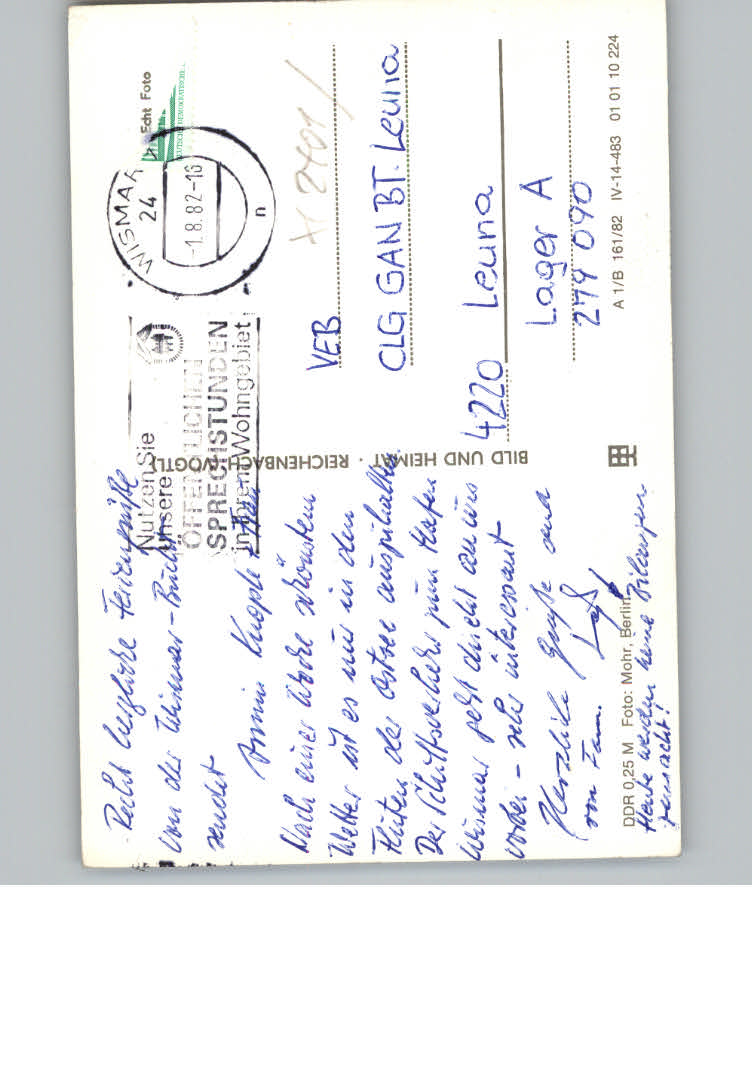 Recht herzliche Feriengrüße
von der Wismar-Bucht
sendet
Armin Knopf + Fam.
Nach einer Woche schönstem
Wetter ist es nur in den
Fluten der Ostsee auszuhalten.
Der Schiffsverkehr zum Hafen
Wismar geht dicht an uns
vorbei – sehr interessant
Herzliche Grüße
von Fam.
Heute werden keine Bilanzen
gemacht!
DDR 0,25 M Foto: Mohr, Berlin
BILD UND HEIMAT · REICHENBACH (VOGTL)
Nutzen Sie
unsere
ÖFFENTLICHEN
SPRECHSTUNDEN
in Ihrem Wohngebiet
WISMAR
24
-1.8.82-16
n
Echt Foto
VEB
CLG GAN BT. Leuna
4220 Leuna
Lager A
279 090
A 1/B 161/82 IV-14-483 01 01 10 224